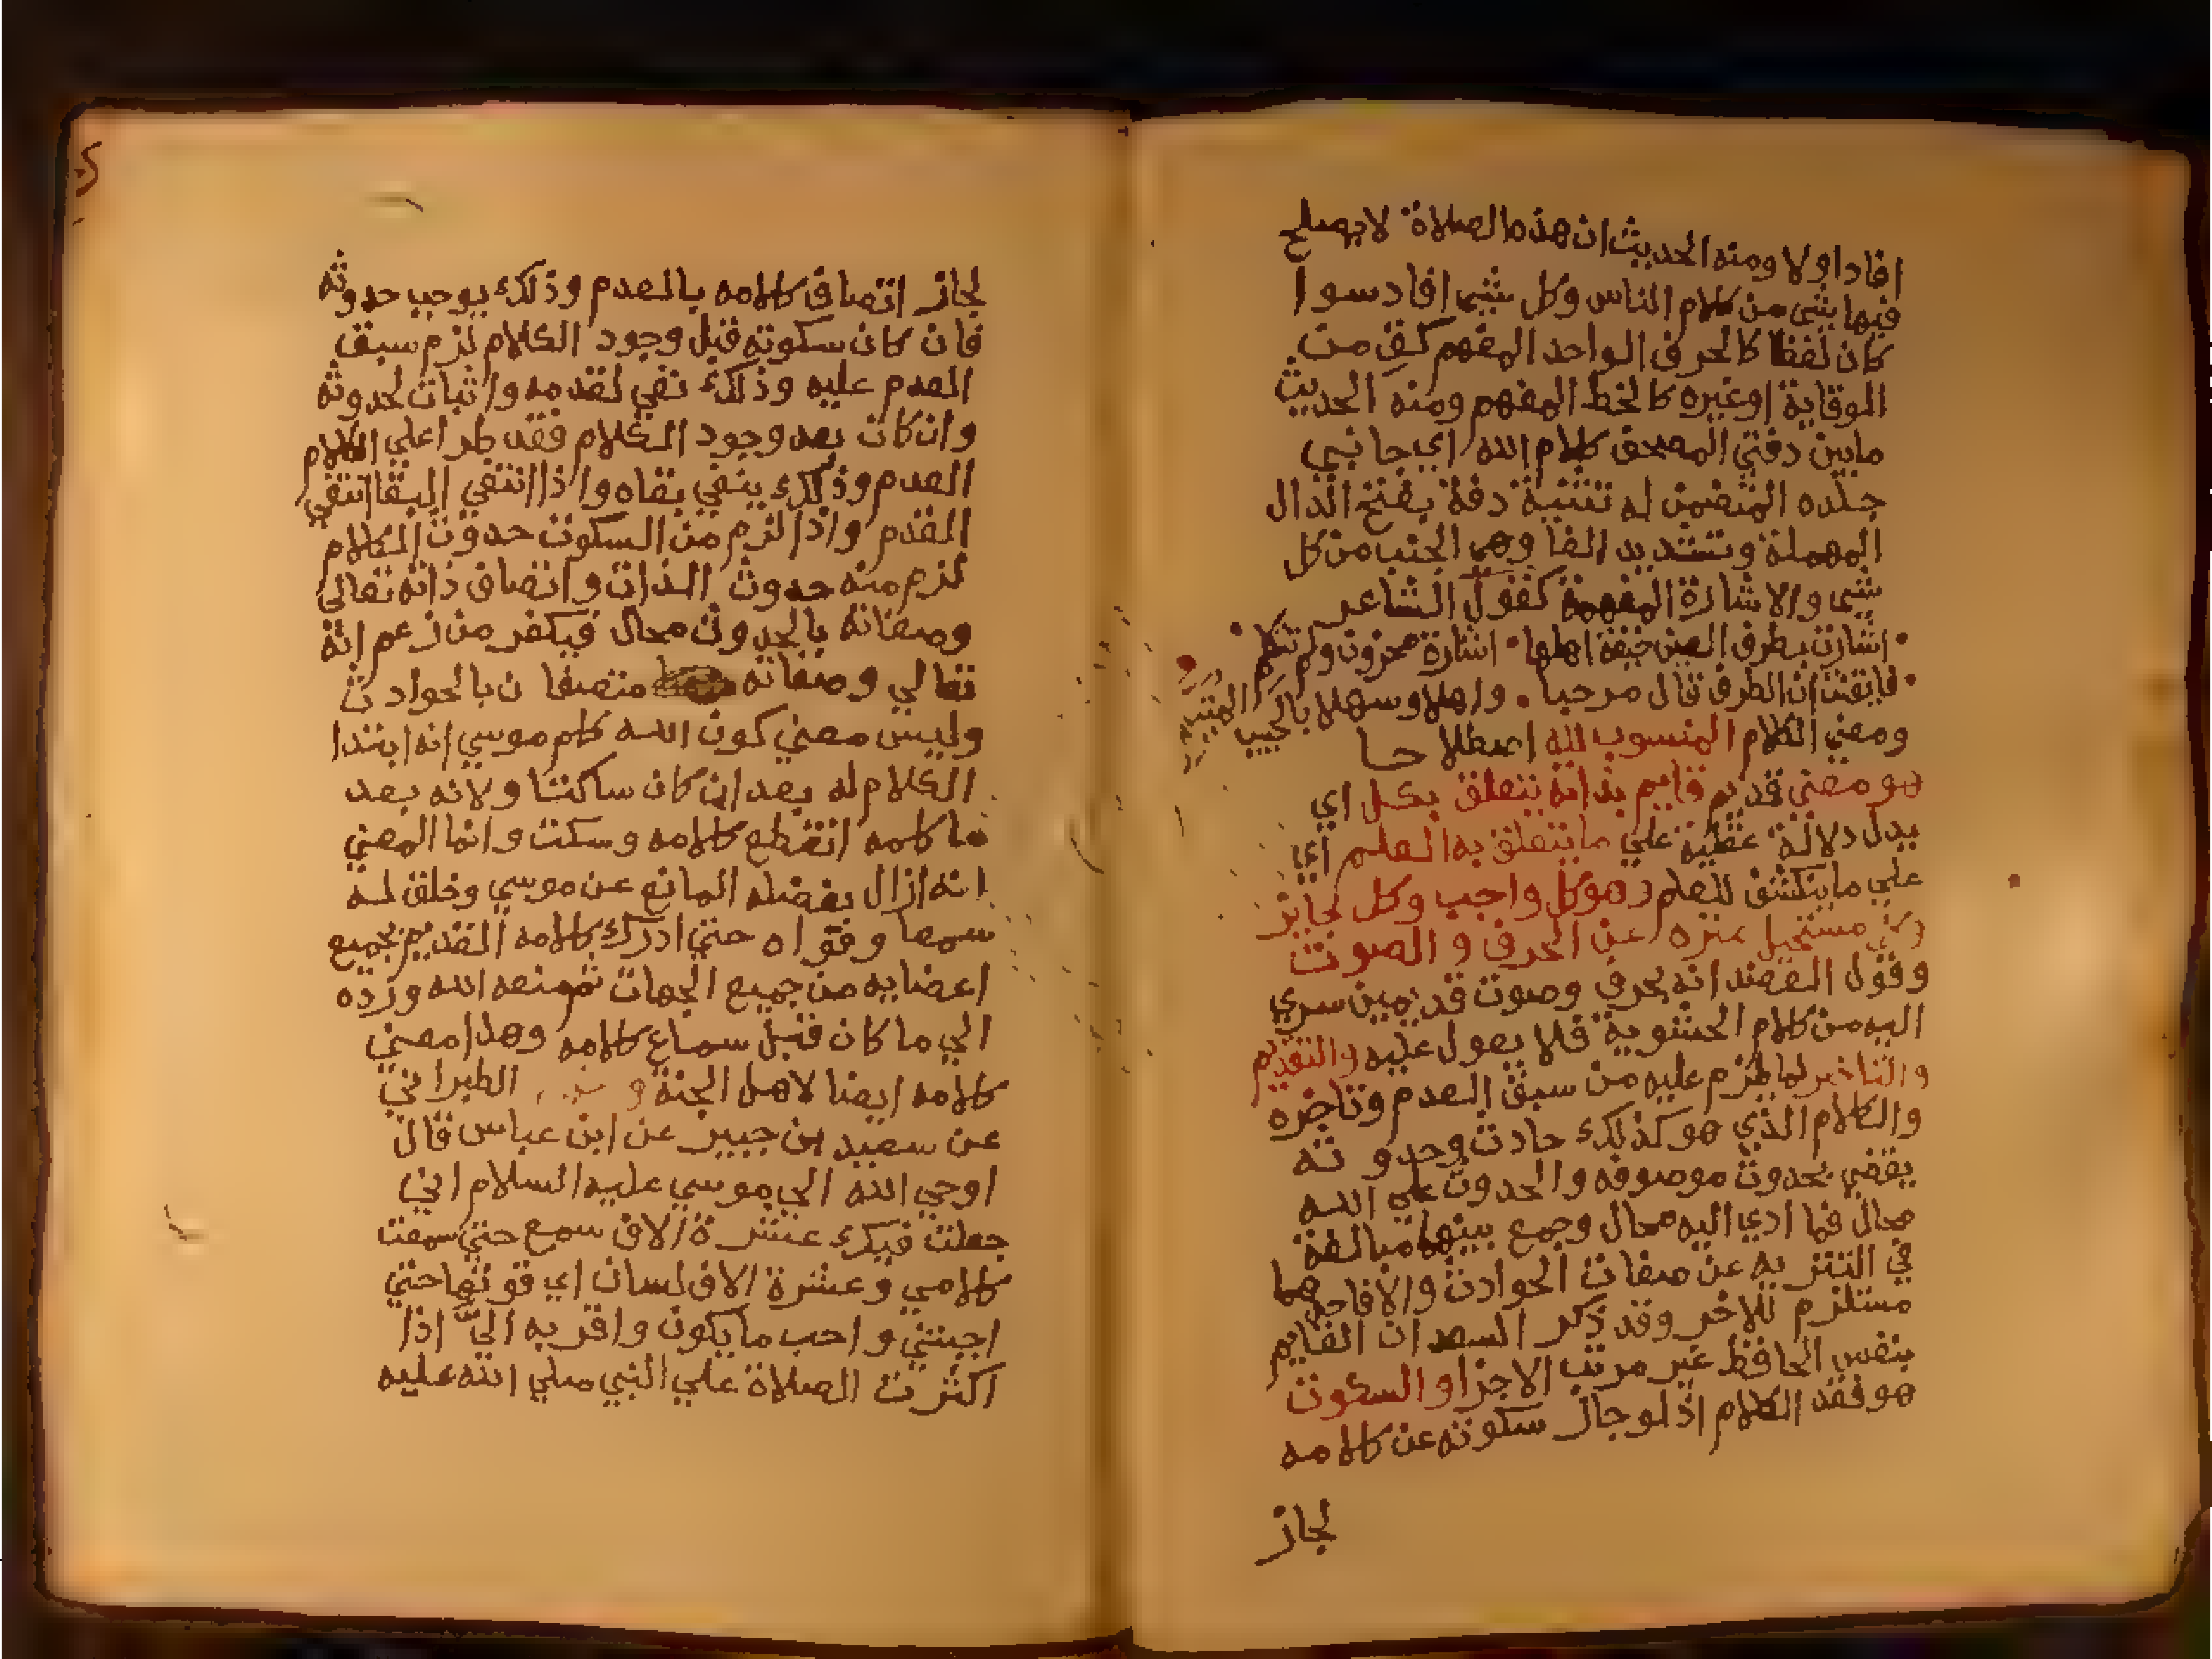 افاد اولا ومنه الحديث ان هذه الصلاة لا يصلح
فيها شي من كلام الناس وكل شي افاد سوا
كان لفظا كالحرف الواحد المفهم كقِ من
الوقاية اوغيره كالخط المفهم ومنه الحديث
مابين دفتي المصحف كلام الله اي جانبي
جلده المتضمن له تثنية دفة بفتح الدال
المهملة وتشديد الفا وهي الجنب من كل
شي والاشارة المفهمة كقول الشاعر
اشارت بطرف العين خيفة اهلها اشارة محزون ولم تتكلم
فايقنت ان الطرف قال مرحبا واهلا وسهلا بالحبيب المتيم
ومعني الكلام المنسوب لله اصطلا حا
هو معني قديم قايم بذاته يتعلق بكل اي
يدل دلالة عقلية علي ما يتعلق به العلم اي
علي ما ينكشف للعلم وهو كل واجب وكل جايز
وكل مستحيل منزه عن الحرف و الصوت
وقول العضد انه بحرف وصوت قديمين سري
اليه من كلام الحشوية فلا يعول عليه والتقديم
والتاخير لما يلزم عليه من سبق العدم وتاخره
والكلام الذي هو كذلك حادث وحدو ثه
يقضي بحدوث موصوفه والحدوث علي الله
محال فما ادي اليه محال وجمع بينهما مبالغة
في التنزيه عن صفات الحوادث والافاحدهما
مستلزم للاخر وقد ذكر السعد ان القايم
بنفس الحافظ غير مرتب الاجزا و السكوت
هو فقد الكلام اذ لو جاز سكوته عن كلامه
لجاز
لجاز اتصاف كلامه بالعدم وذلك يوجب حدوثه
فان كان سكوته قبل وجود الكلام لزم سبق
العدم عليه وذلك نفي لقدمه واثبات لحدوثه
وان كان بعد وجود الكلام فقد طرا علي الكلام
العدم وذلك ينفي بقاه واذا انتفي البقا انتفي
القدم واذا لزم من السكوت حدوث الكلام
لزم منه حدوث الذات واتصاف ذاته تعالي
وصفاته بالحدوث محال فيكفر من زعم انه
تعالي وصفاته متصفا ن بالحوادث
وليس معني كون الله كلم موسي انه ابتدا
الكلام له بعد ان كان ساكتا ولا نه بعد
ما كلمه انقطع كلامه وسكت وانما المعني
انه ازال بفضله المانع عن موسي وخلق له
سمعا وقواه حتي ادرك كلامه القديم بجميع
اعضايه من جميع الجهات ثم منعه الله ورده
الي ما كان قبل سماع كلامه وهذا معني
كلامه ايضا لاهل الجنة و الطبراني
عن سعيد بن جبير عن ابن عباس قال
اوحي الله الي موسي عليه السلام اني
جعلت فيك عشرة الاف سمع حتي سمعت
كلامي وعشرة الاف لسان اي قوتها حتي
اجبتني واحب ما يكون واقربه اليّ اذا
اكثرت الصلاة علي النبي صلي الله عليه